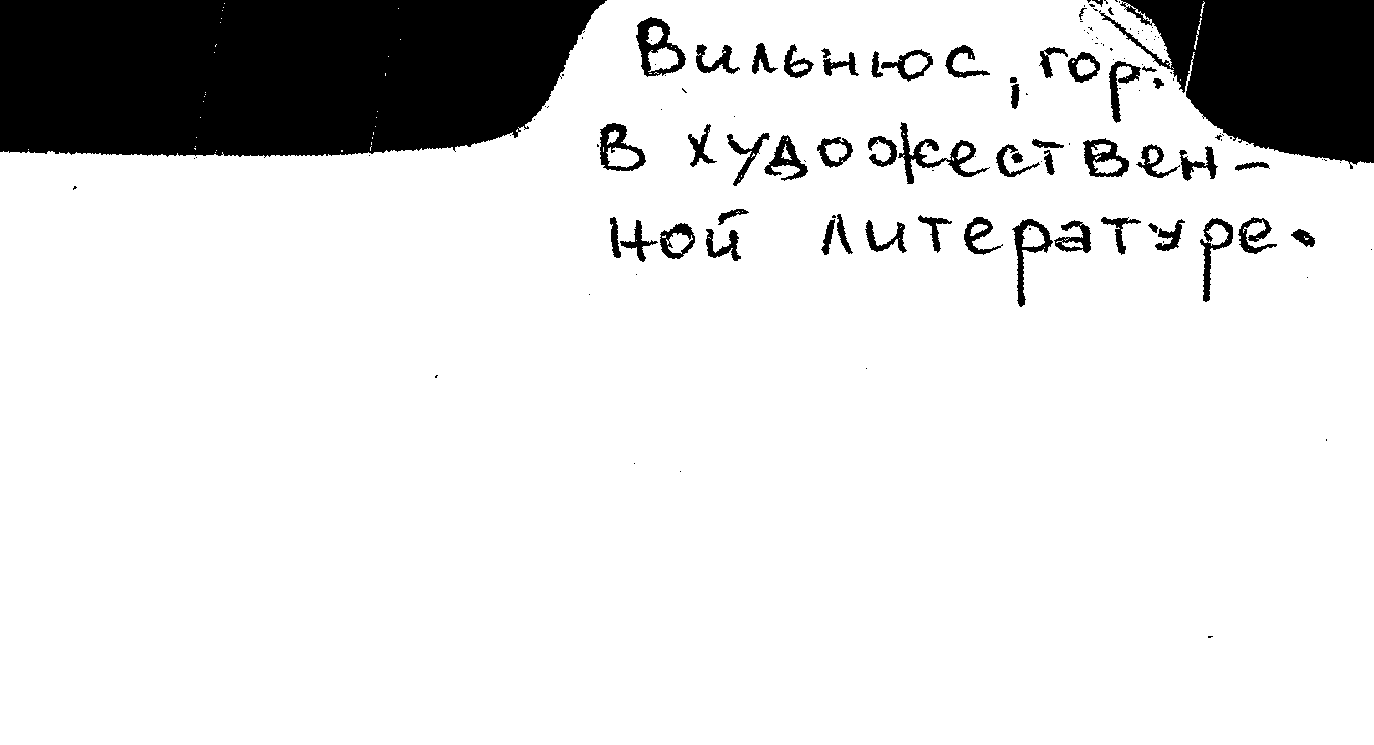 Вильнюс, гор.
в художествен-
ной литературе.